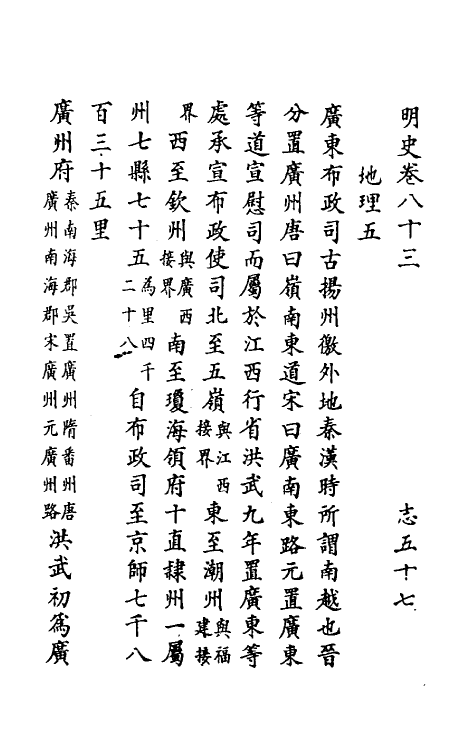 明史卷八十三 志五十七
地理五
廣東布政司古揚州徼外地秦漢時所謂南越也晉
分置廣州唐曰嶺南東道宋曰廣南東路元置廣東
等道宣慰司而屬於江西行省洪武九年置廣東等
處承宣布政使司北至五嶺與江西接界東至潮州與福建接
界西至欽州與廣西接界南至瓊海領府十直隸州一屬
州七縣七十五為里四千二十八自布政司至京師七千八
百三十五里
廣州府秦南海郡吳置廣州隋番州唐廣州南海郡宋廣州元廣州路洪武初爲廣